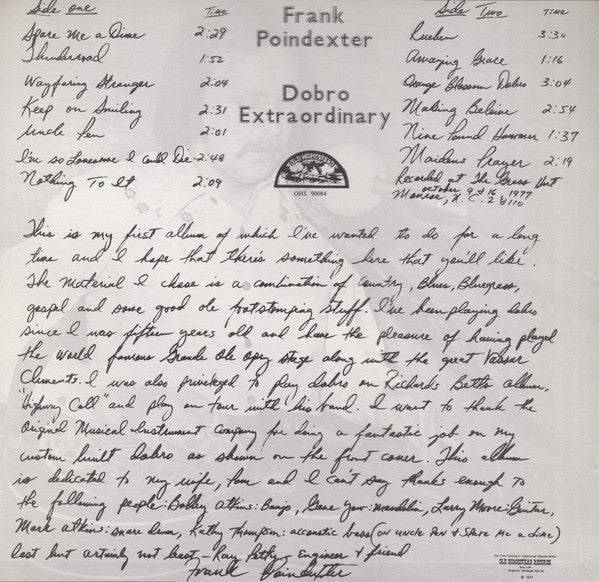 Side One Time
Spare Me a Dime 2:29
Thunderroad 1:52
Wayfaring Stranger 2:04
Keep on Smiling 2:31
Uncle Pen 2:01
I'm so Lonesome I Could Die - 2:48
Nothing To It 2:09
Frank
Poindexter
Dobro
Extraordinary
OLD HOMESTEAD
OHS 90084
Side Two Time
Rueben 3:30
Amazing Grace 1:16
Orange Blossom Dobro 3:04
Making Believe 2:54
Nine Pound Hammer 1:37
Maidens Prayer 2:19
Recorded at The Grass Hut
October 9 & 16, 1977
Monroe, N.C. 28110
This is my first album of which I've wanted to do for a long
time and I hope that there's something here that you'll like.
The Material I chose is a combination of Country, Blues, Bluegrass,
gospel and some good ole footstomping stuff. I've been playing dobro
since I was fifteen years old and have the pleasure of having played
the World famous Grande Ole Opry stage along with the great Vassar
Clements. I was also privileged to play dobro on Richard Betts album,
"Highway Call" and play on tour with his band. I want to thank the
Original Musical Instrument Company for doing a fantastic job on my
custom built dobro as shown on the front cover. This album
is dedicated to my wife, Pam and I can't say thanks enough to
the following people: Bobby Atkins: Banjo, Gene Yow: mandolin, Larry Moore: Guitar,
Mark Atkins: snare drum, Kathy Thompson: accoustic bass (on Uncle Pen & Spare me a dime)
last but certainly not least - Ray Petty - Engineer & friend
Frank Poindexter
OLD HOMESTEAD RECORDS